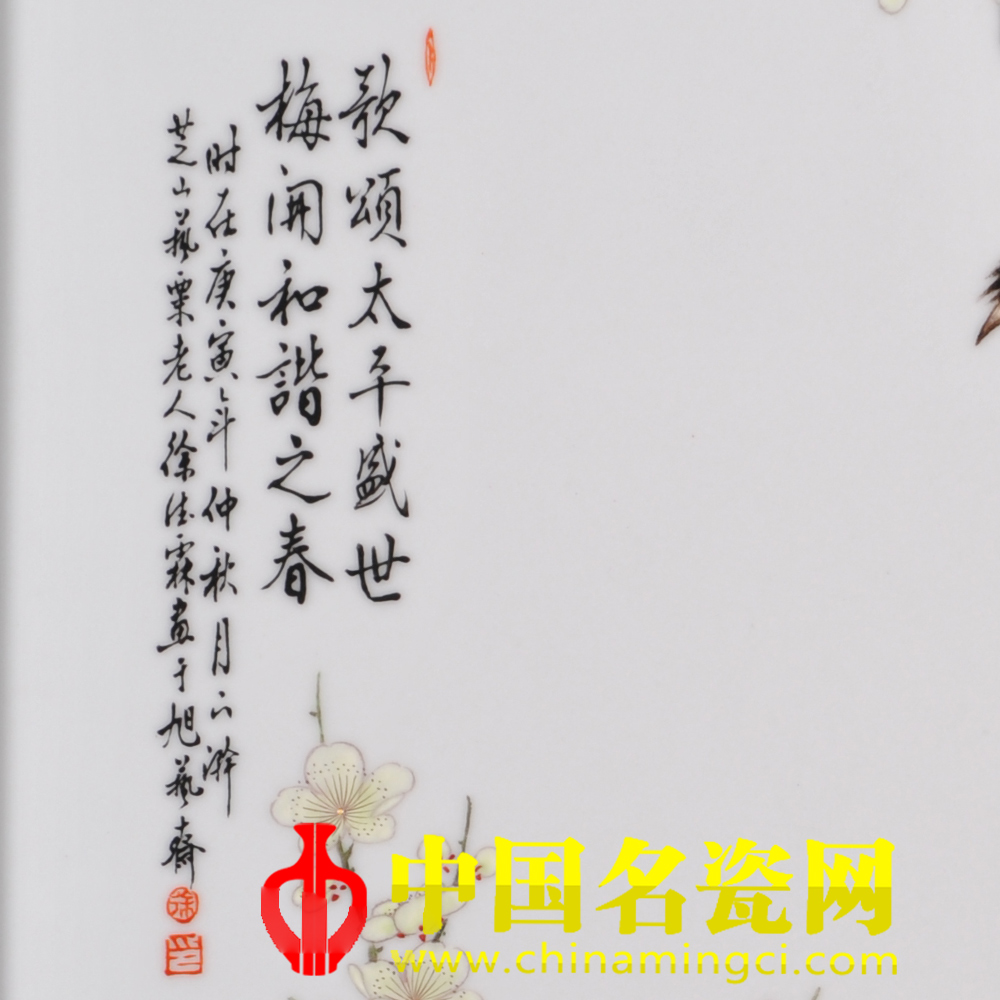 歌頌太平盛世
梅開和諧之春
时在庚寅年仲秋月下澣
芝山藝粟老人徐德霖畫于旭藝斋
中国名瓷网
www.chinamingci.com